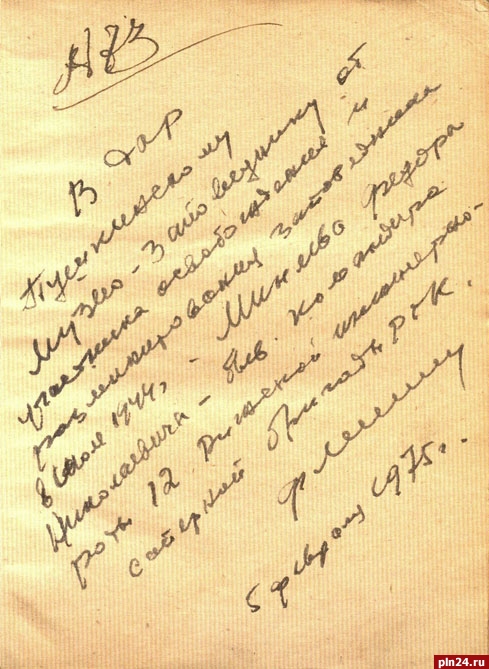 В дар
Пушкинскому
музею-заповеднику от
участника освобождения и
разминирования заповедника
в июле 1944г. - Миняево Федора
Николаевича - быв. командира
роты 12 Рижской инженерно-
саперной бригады РГК.
5 февраля 1975г.
pln24.ru